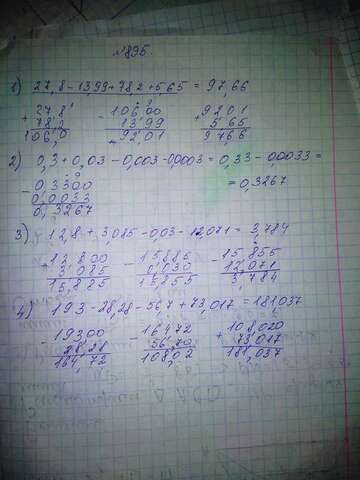 №895.
1) 27,8 - 13,99 + 78,2 + 5,65 = 97,66
+ 27,8 - 106,00 + 92,01
78,2 13,99 5,65
106,0 92,01 97,66
2) 0,3 + 0,03 - 0,003 - 0,0003 = 0,33 - 0,0033 =
- 0,3300 = 0,3267
0,0033
0,3267
3) 12,8 + 3,085 - 0,03 - 12,071 = 3,784
+ 12,800 - 15,885 - 15,855
3,085 0,030 12,071
15,885 15,855 3,784
4) 193 - 28,28 - 56,7 + 73,017 = 181,037
- 193,00 - 164,72 + 108,020
28,28 56,70 73,017
164,72 108,02 181,037